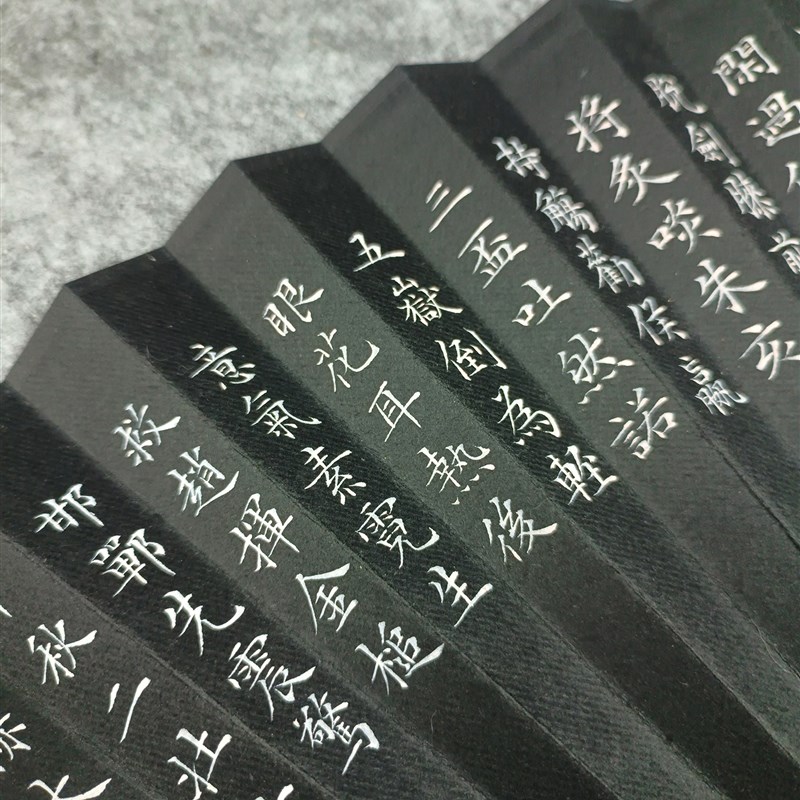 閑過
脫劍膝前
將炙啖朱亥
持觴勸侯嬴
三盃吐然諾
五嶽倒為輕
眼花耳熱後
意氣素霓生
救趙揮金槌
邯鄲先震驚
秋二壯
大